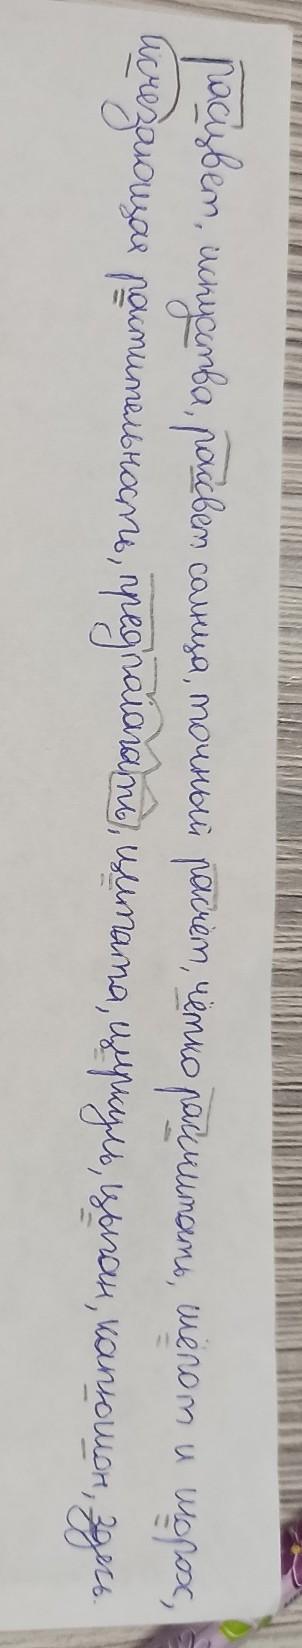 расцвет, искусства, рассвет солнца, точный расчёт, чётко рассчитать, шёпот и шорох,
исчезающая растительность, предполагать, цитата, циркуль, цыган, капюшон, здесь.